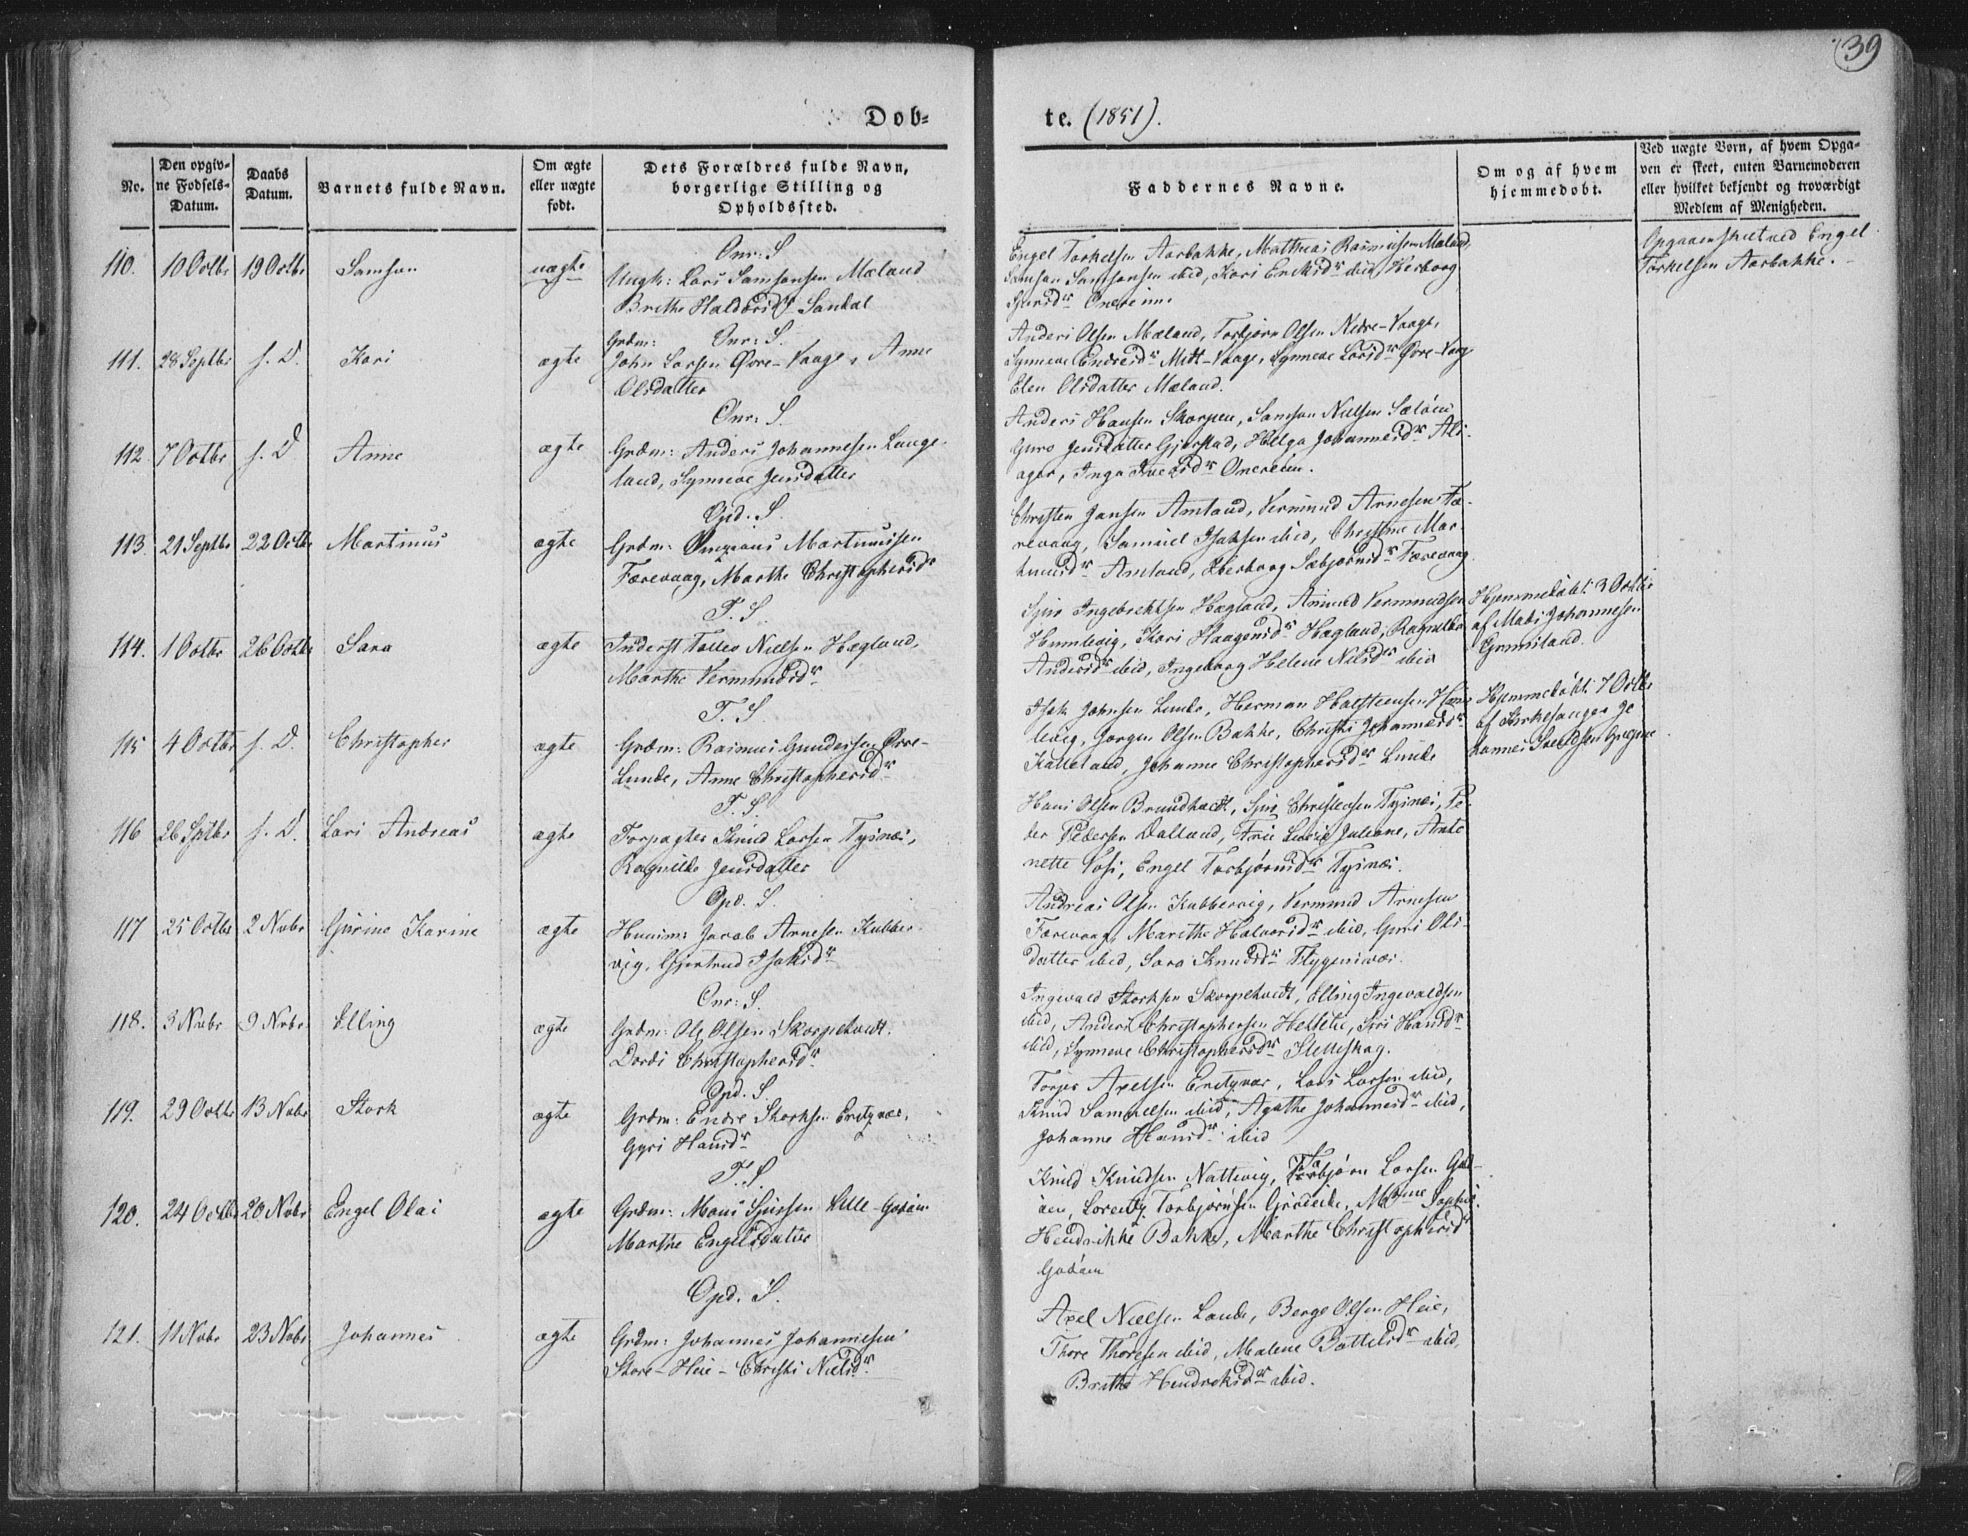 39
Døb=
te. (1851).
No.
Den opgiv=
ne Fødsels=
Datum.
Daabs
Datum.
Barnets fulde Navn.
Om ægte
eller uægte
født.
Dets Forældres fulde Navn,
borgerlige Stilling og
Opholdssted.
Faddernes Navne.
Om og af hvem
hjemmedøbt.
Ved uægte Børn, af hvem Opga=
ven er skeet, enten Barnemoderen
eller hvilket bekjendt og troværdigt
Medlem af Menigheden.
110. 10 Octbr 19 Octbr Samson uægte
Onr: S
Ungk: Lars Samsonsen Mæland
Brithe Haldorsdr Sandal
Engel Torkelsen Aarbakke, Matthias Rasmussen Mæland,
Samson Samsonsen ibid, Kari Eriksdr ibid, Herborg
Sjursdr Onereim
Opgaven skeet ved Engel
Torkelsen Aarbakke.
111. 28 Septbr s. D. Kari ægte
Grdm: Onr: S.
John Larsen Øvre-Vaage, Anne
Olsdatter
Anders Olsen Mæland, Torbjørn Olsen Nedre-Vaage,
Synneve Endresdr Mitt-Vaage, Synneve Larsdr Øvre-Vaag
Elen Olsdatter Mæland.
112 7 Octbr s. D Anne ægte
Onr: S.
Grdm: Anders Johannesen Lauge-
land, Synneve Jensdatter
Anders Hansen Skorpen, Samson Nielsen Sæløen
Guro Jensdatter Gjerstad, Helga Johannesdr Als-
ager, Inga Iversdr Onereim.
113. 21 Septbr 22 Octbr Martinus ægte
Opd. S.
Grdm: Martinussen
Færevaag, Marthe Christophersdr
Christen Jansen Amland, Vermund Arnesen Fæ-
revaag, Samuel Isaksen ibid, Christine Mar-
tinusdr Amland, Herborg Sæbjørnsdr Færevaag
114. 1 Octbr 26 Octbr Sara ægte
T. S.
Inderst Tolles Nielsen Hægland,
Marthe Vermundsdr
Sjur Ingebrektsen Hægland, Amund Vermundsen
Humlevig, Kari Haagensdr Hægland, Ragnilda
Andersdr ibid, Ingeborg Helene Nilsdr ibid
Hjemmedøbt 3 Octbr
af Mads Johannesen
115 4 Octbr s. D. Christopher ægte
T. S.
Grdm: Rasmus Gundersen Øvre-
Lunde, Anne Christophersdr
Isak Johnsen Lunde, Herman Halsteensen Hum-
levig, Jørgen Olsen Bakke, Christi Johannesdr
Kalleland, Johanne Christophersdr Lunde
Hjemmedøbt 7 Octbr
af Kirkesanger Jo-
hannes
116 26 Sptbr s. D. Lars Andreas ægte
T. S.
Forpagter Knud Larsen Tysnæs,
Ragnilde Jensdatter
Hans Olsen Brundtvedt, Sjur Christensen Tysnæs, Pe-
der Pedersen Dalland, Frue Lucie Juliane, Anto-
nette Voss, Engel Torbjørnsdr Tysnæs.
117 25 Octbr 2 Nvbr Gurine Karine ægte
Opd. S.
Huusm: Jacob Arnesen Kubber-
vig, Gjertrud Isaksdr
Andreas Olsen Kubbervig, Vermund Arnesen
Færevaag, Marithe Halvorsdr ibid, Guri Ols-
datter ibid, Sara Knudsdr Flygensvær.
118. 3 Nvbr 9 Nvbr Elling ægte
Onr: S.
Grdm: Ole Olsen Skorpehvedt.
Dordi Christophersdr
Ingevald Størksen Skorpehvedt, Elling Ingevaldsen
ibid, Anders Christophersen Helleli, Siri Hansdr
ibid, Synneve Christophersdr Sletteskog.
119. 29 Octbr 13 Nvbr Størk ægte
Opd. S.
Grdm: Endre Størksen Enesvær,
Gyri Hansdr
Torger Axelsen Enesvær, Lars Larsen ibid,
Knud Samuelsen ibid, Agathe Johannesdr ibid,
Johanne Hansdr ibid
120. 24 Octbr 20 Nvbr Engel Olai ægte
T. S.
Grdm: Mons Sjursen Lille-Godøen
Marthe Engelsdatter
Knud Knudsen Nattvig, Torbjørn Larsen God-
øen, Lorents Torbjørnsen, Mme Sophie
Hendrikke Bakke, Marthe Christophersdr
Godøen
121. 11 Nvbr 23 Nvbr Johannes ægte
Opd. S.
Grdm: Johannes Johannesen
Store-Heie - Christi Nielsdr.
Axel Nielsen Lande, Berge Olsen Heie,
Thore Thoresen ibid, Malene Bottelsdr ibid,
Brithe Hendreksdr ibid.